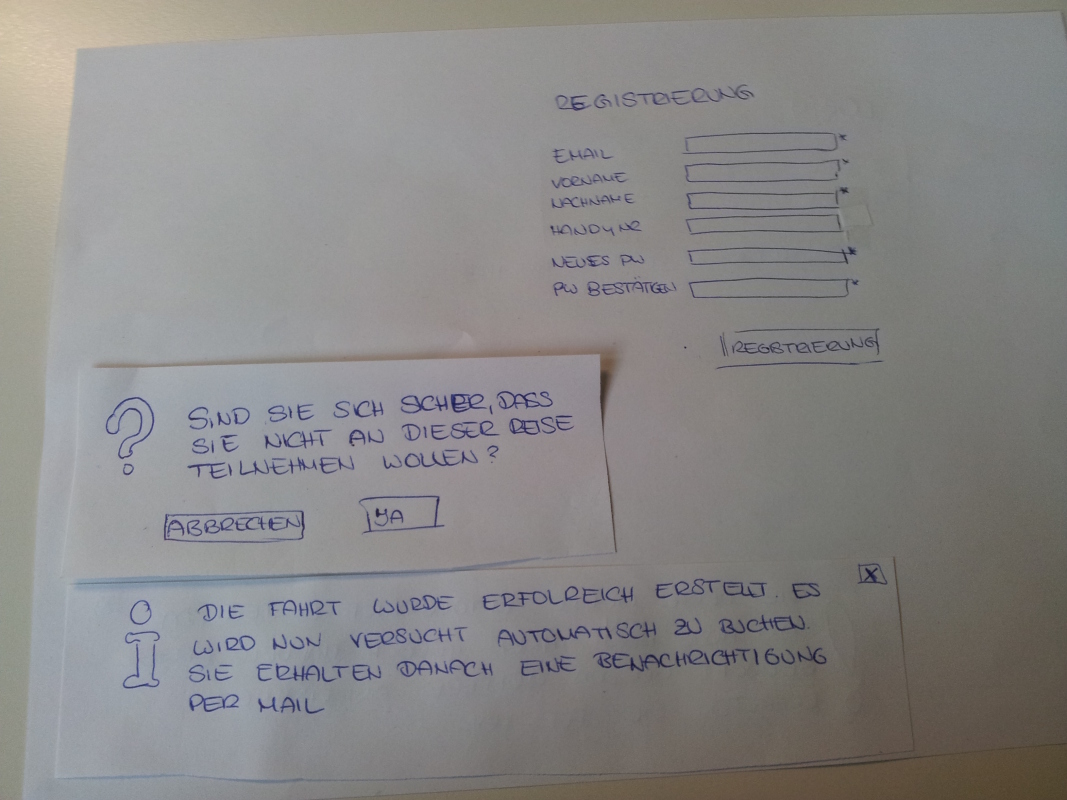 REGISTRIERUNG
EMAIL *
VORNAME *
NACHNAME *
HANDYNR
NEUES PW *
PW BESTÄTIGEN *
REGISTRIERUNG
? SIND SIE SICH SICHER, DASS
SIE NICHT AN DIESER REISE
TEILNEHMEN WOLLEN?
ABBRECHEN JA
X
i DIE FAHRT WURDE ERFOLREICH ERSTELLT. ES
WIRD NUN VERSUCHT AUTOMATISCH ZU BUCHEN.
SIE ERHALTEN DANACH EINE BENACHRICHTIGUNG
PER MAIL